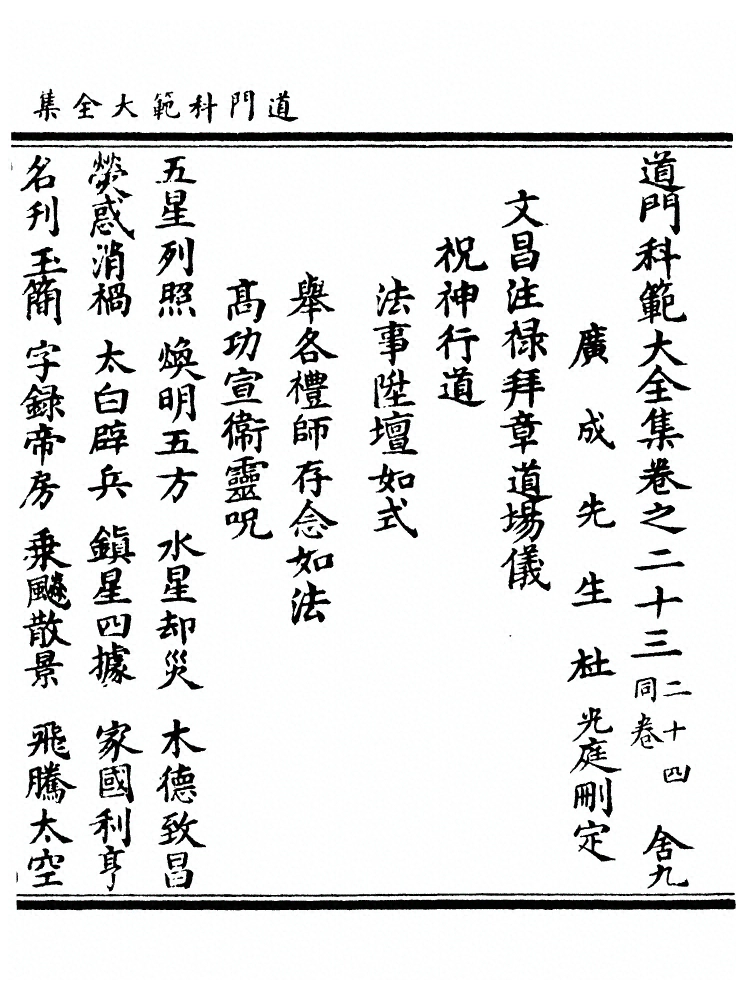 道門科範大全集
道門科範大全集卷之二十三二十四同卷 舍九
廣成先生杜光庭刪定
文昌注祿拜章道場儀
祝神行道
法事陞壇如式
舉各禮師存念如法
高功宣衞靈呪
五星列照 煥明五方 水星却災 木德致昌
熒惑消禍 太白辟兵 鎮星四據 家國利亨
名刊玉簡 字録帝房 乗飈散景 飛騰太空